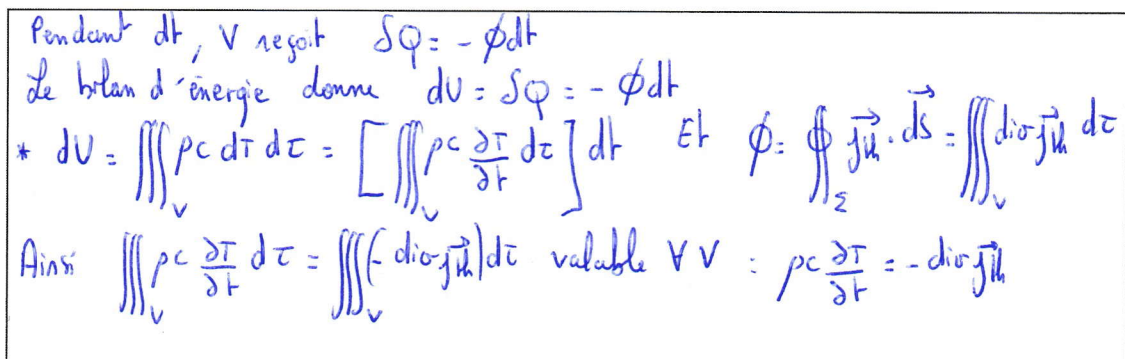 Pendant dt, V reçoit δQ = - ϕdt
Le bilan d'énergie donne dU = δQ = - ϕdt
* dU = ∭_V ρc dT dτ = [∭_V ρc ∂T/∂t dτ] dt Et ϕ = ∯_Σ j⃗th · dS⃗ = ∭_V div j⃗th dτ
Ainsi ∭_V ρc ∂T/∂t dτ = ∭_V (- div j⃗th) dτ valable ∀ V : ρc ∂T/∂t = - div j⃗th